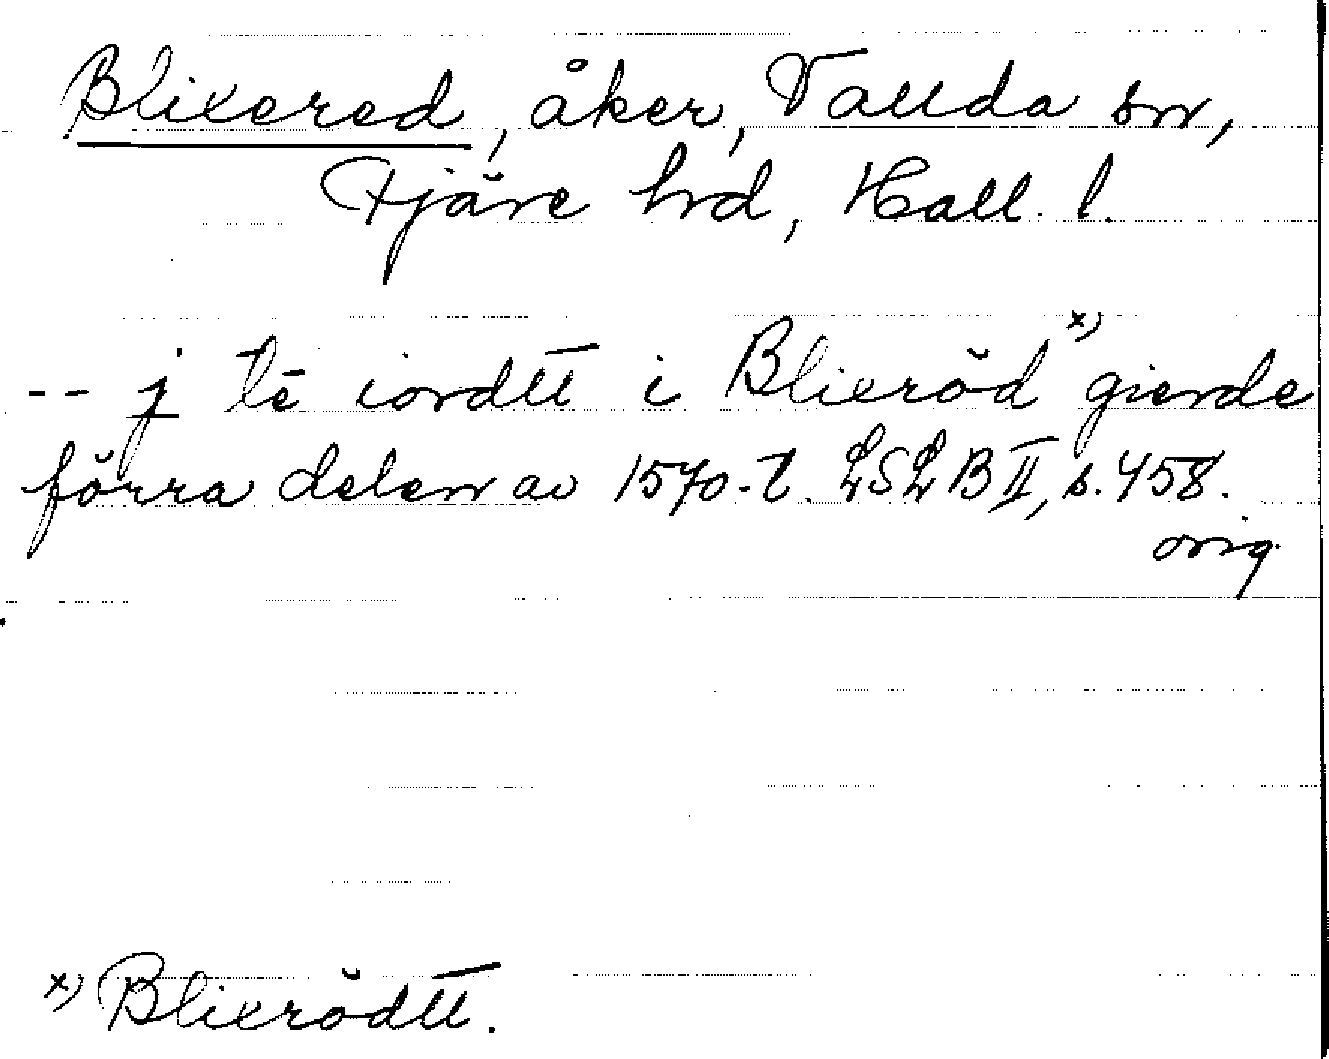 Blixered, åker, Vallda sn,
Fjäre hrd, Hall. l.
-- j lĕ iordtt i Blixröd x) gierde
förra delen av 1570-t. LSLB II, s. 458.
orig.
x) Blixrödtt.